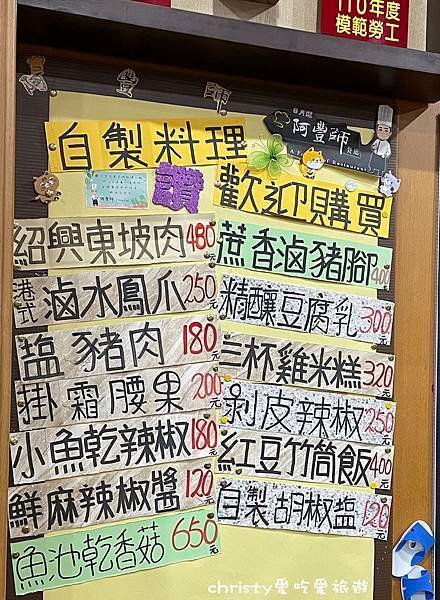 110年度
模範勞工
阿豐師
阿豐師
自製料理
讚
歡迎購買
紹興東坡肉480元
港式滷水鳳爪250元
塩豬肉180元
掛霜腰果200元
小魚乾辣椒180元
鮮麻辣椒醬120元
魚池乾香菇650元
蔗香滷豬腳400
精釀豆腐乳300元
三杯雞米糕320
剝皮辣椒250元
紅豆竹筒飯400元
自製胡椒塩120元
christy愛吃愛旅遊